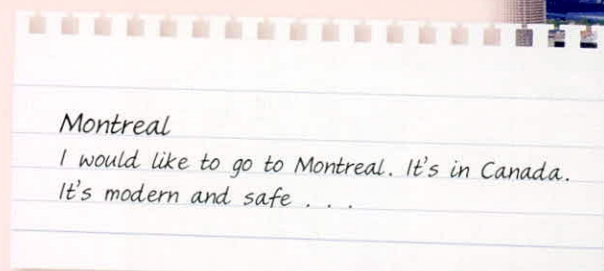 Montreal
I would like to go to Montreal. It's in Canada.
It's modern and safe . . .